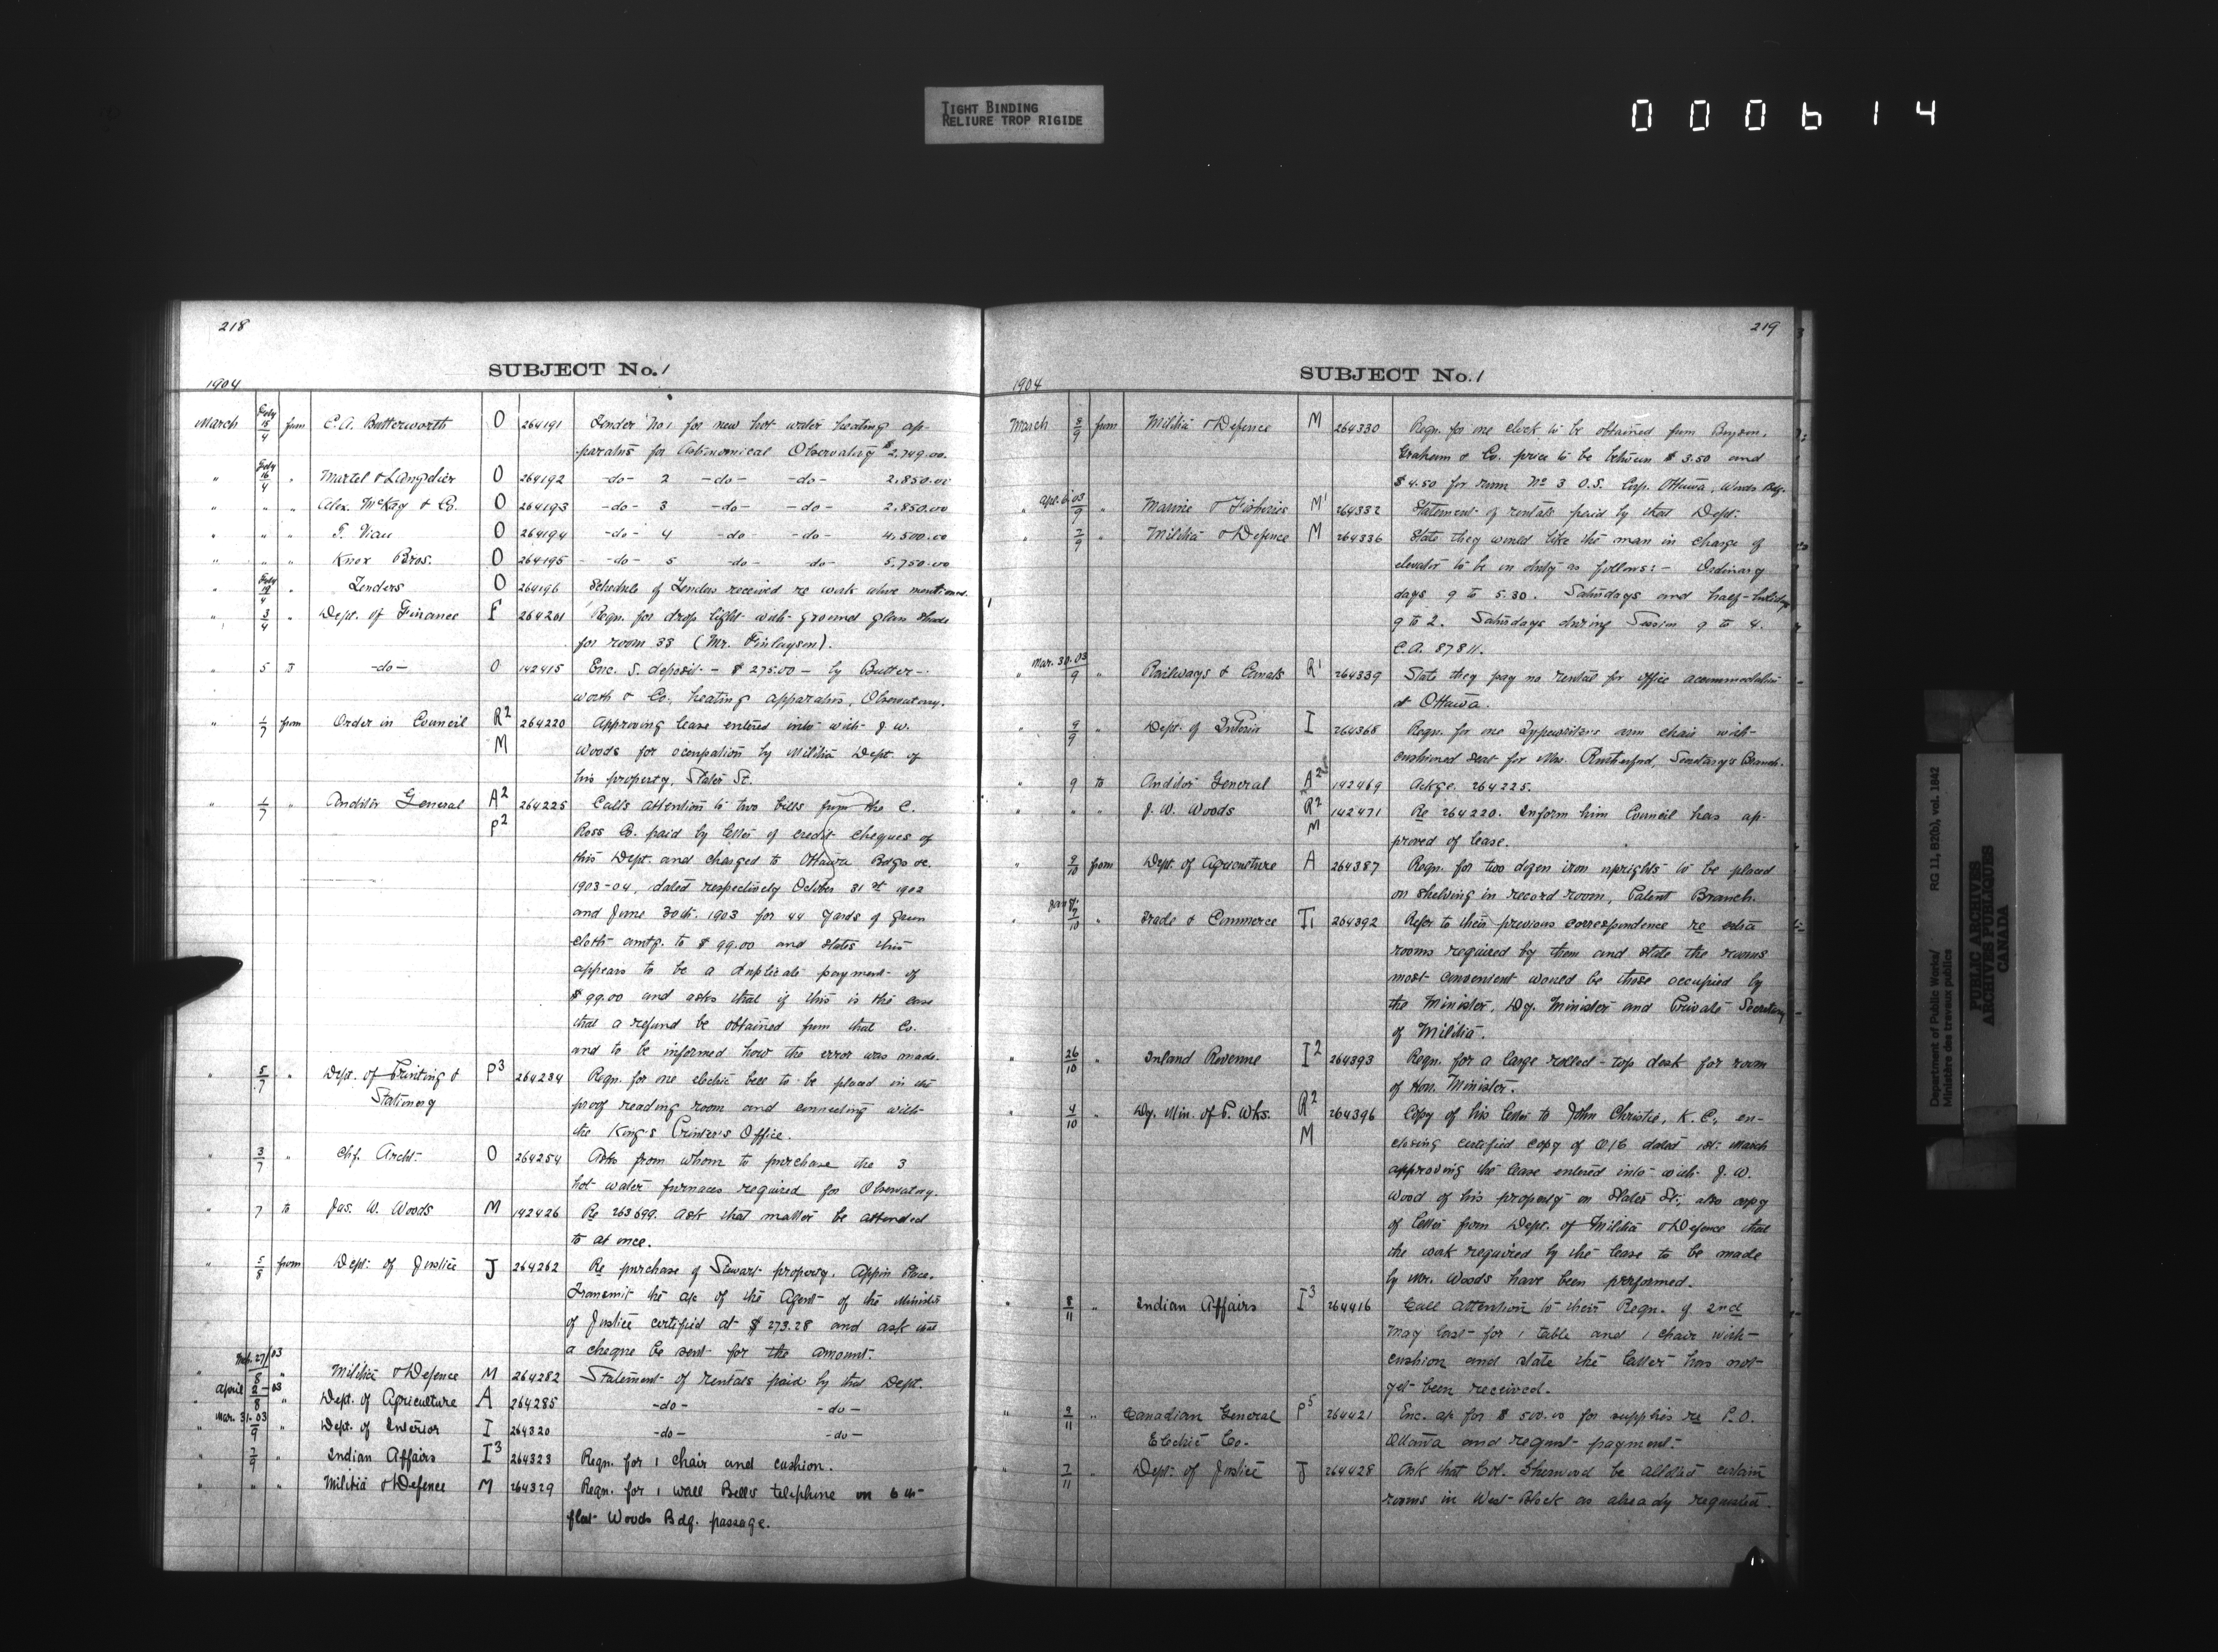 TIGHT BINDING
RELIURE TROP RIGIDE
000614
218
SUBJECT No. 1
1904
March Feby 15/4 from C.A. Butterworth O 264191 Tender No 1 for new hot water heating ap-
paratus for Astronomical Observatory $2,749.00
" Feby 16/4 " Martel & Langelier O 264192 -do- 2 -do- -do- 2,850.00
" " " Alex. McKay & Co. O 264193 -do- 3 -do- -do- 2,850.00
" " " T. Viau O 264194 -do- 4 -do- -do- 4,500.00
" " " Knox Bros. O 264195 -do- 5 -do- -do- 5,750.00
" Feby /4 " Tenders O 264196 Schedule of Tenders received re work above mentioned.
" 3/4 " Dept. of Finance F 264201 Reqn. for drop light with ground glass shade
for room 33 (Mr. Finlayson).
" 5 J -do- O 142415 Enc. S. deposit - $275.00 - by Butter-
worth & Co., heating apparatus, Observatory.
" 1/7 from Order in Council R2 264220 Approving lease entered into with J. W.
M Woods for occupation by Militia Dept. of
his property, Slater St.
" 1/7 " Auditor General A2 264225 Calls attention to two bills from the C.
P2 Ross Co. paid by letter of credit cheques of
this Dept. and charged to Ottawa Bdgs &c.
1903-04, dated respectively October 31st 1902
and June 30th. 1903 for 44 yards of green
cloth amtg. to $99.00 and states this
appears to be a duplicate payment of
$99.00 and asks that if this is the case
that a refund be obtained from that Co.
and to be informed how the error was made.
" 5/7 " Dept. of Printing & P3 264234 Reqn. for one electric bell to be placed in the
Stationery proof reading room and connecting with
the King's Printer's Office.
" 3/7 " Chf. Archt. O 264254 Asks from whom to purchase the 3
hot water furnaces required for Observatory.
" 7 to Jas. W. Woods M 142426 Re 263699. Ask that matter be attended
to at once.
" 5/8 from Dept. of Justice J 264262 Re purchase of Stewart property. Appin Place.
Transmit the a/c of the Agent of the Minister
of Justice certified at $273.28 and ask that
a cheque be sent for the amount.
" 27/03 8 " Militia & Defence M 264282 Statement of rentals paid by that Dept.
" April 2-03 8 " Dept. of Agriculture A 264285 -do- -do-
" Mar. 31.03 9 " Dept. of Interior I 264320 -do- -do-
" 7/9 " Indian Affairs I3 264323 Reqn. for 1 chair and cushion.
" " " Militia & Defence M 264329 Reqn. for 1 wall Bell's telephone on 6th
flat Woods Bdg. passage.
219
SUBJECT No. 1
1904
March 8/9 from Militia & Defence M 264330 Reqn. for one clock to be obtained from Bryson,
Graham & Co. price to be between $3.50 and
$4.50 for room No 3 O.S. Corp. Ottawa, Woods Bdg.
" Apl. 6 03 9 " Marine & Fisheries M1 264332 Statement of rentals paid by that Dept.
" 7/9 " Militia & Defence M 264336 State they would like the man in charge of
elevator to be on duty as follows:- Ordinary
days 9 to 5.30. Saturdays and half-holidays
9 to 2. Saturdays during Session 9 to 4.
C.A. 87811.
" Mar. 30.03 9 " Railways & Canals R1 264339 State they pay no rental for office accommodation
at Ottawa.
" 9/9 " Dept. of Interior I 264368 Reqn. for one Typewriters arm chair with
cushioned seat for Mrs. Rutherford, Secretary's Branch.
" 9 to Auditor General A2 142469 Ackge. 264225.
" " " J. W. Woods R2 142471 Re 264220. Inform him Council has ap-
M proved of lease.
" 9/10 from Dept. of Agriculture A 264387 Reqn. for two dozen iron uprights to be placed
on shelving in record room, Patent Branch.
" 7/10 " Trade & Commerce T1 264392 Refer to their previous correspondence re extra
rooms required by them and state the rooms
most convenient would be those occupied by
the Minister, Dy. Minister and Private Secretary
of Militia.
" 26/10 " Inland Revenue I2 264393 Reqn. for a large rolled-top desk for room
of Hon. Minister.
" 4/10 " Dy. Min. of P. Wks. R2 264396 Copy of his letter to John Christie, K.C., en-
M closing certified copy of O/C dated 1st. March
approving the lease entered into with J. W.
Wood of his property on Slater St., also copy
of letter from Dept. of Militia & Defence that
the work required by the lease to be made
by Mr. Woods have been performed.
" 8/11 " Indian Affairs I3 264416 Call attention to their Reqn. of 2nd
May last for 1 table and 1 chair with
cushion and state the latter has not
yet been received.
" 9/11 " Canadian General P5 264421 Enc. a/c for $500.00 for supplies re P.O.
Electric Co. Ottawa and request payment.
" 7/11 " Dept. of Justice J 264428 Ask that Col. Sherwood be allotted certain
rooms in West Block as already requested.
Department of Public Works/ RG 11, B2(b), vol. 1842
Ministère des travaux publics
PUBLIC ARCHIVES
ARCHIVES PUBLIQUES
CANADA